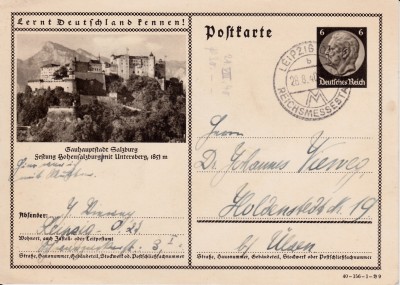 Lernt Deutschland kennen!
Postkarte
6 6
Deutsches Reich
LEIPZIG
b
28.8.40
M
REICHSMESSESTA
Gauhauptstadt Salzburg
Festung Hohensalzburg mit Untersberg, 1853 m
Herrn
Dr. Johannes Vieweg,
Holdenstedt 19
b/ Ülsen
Absender:
Leipzig O 27
Wohnort, auch Zustell- oder Leitpostamt
Straße, Hausnummer, Gebäudeteil, Stockwerk od. Postschließfachnummer
Straße, Hausnummer, Gebäudeteil, Stockwerk oder Postschließfachnummer
40-156-1-B9